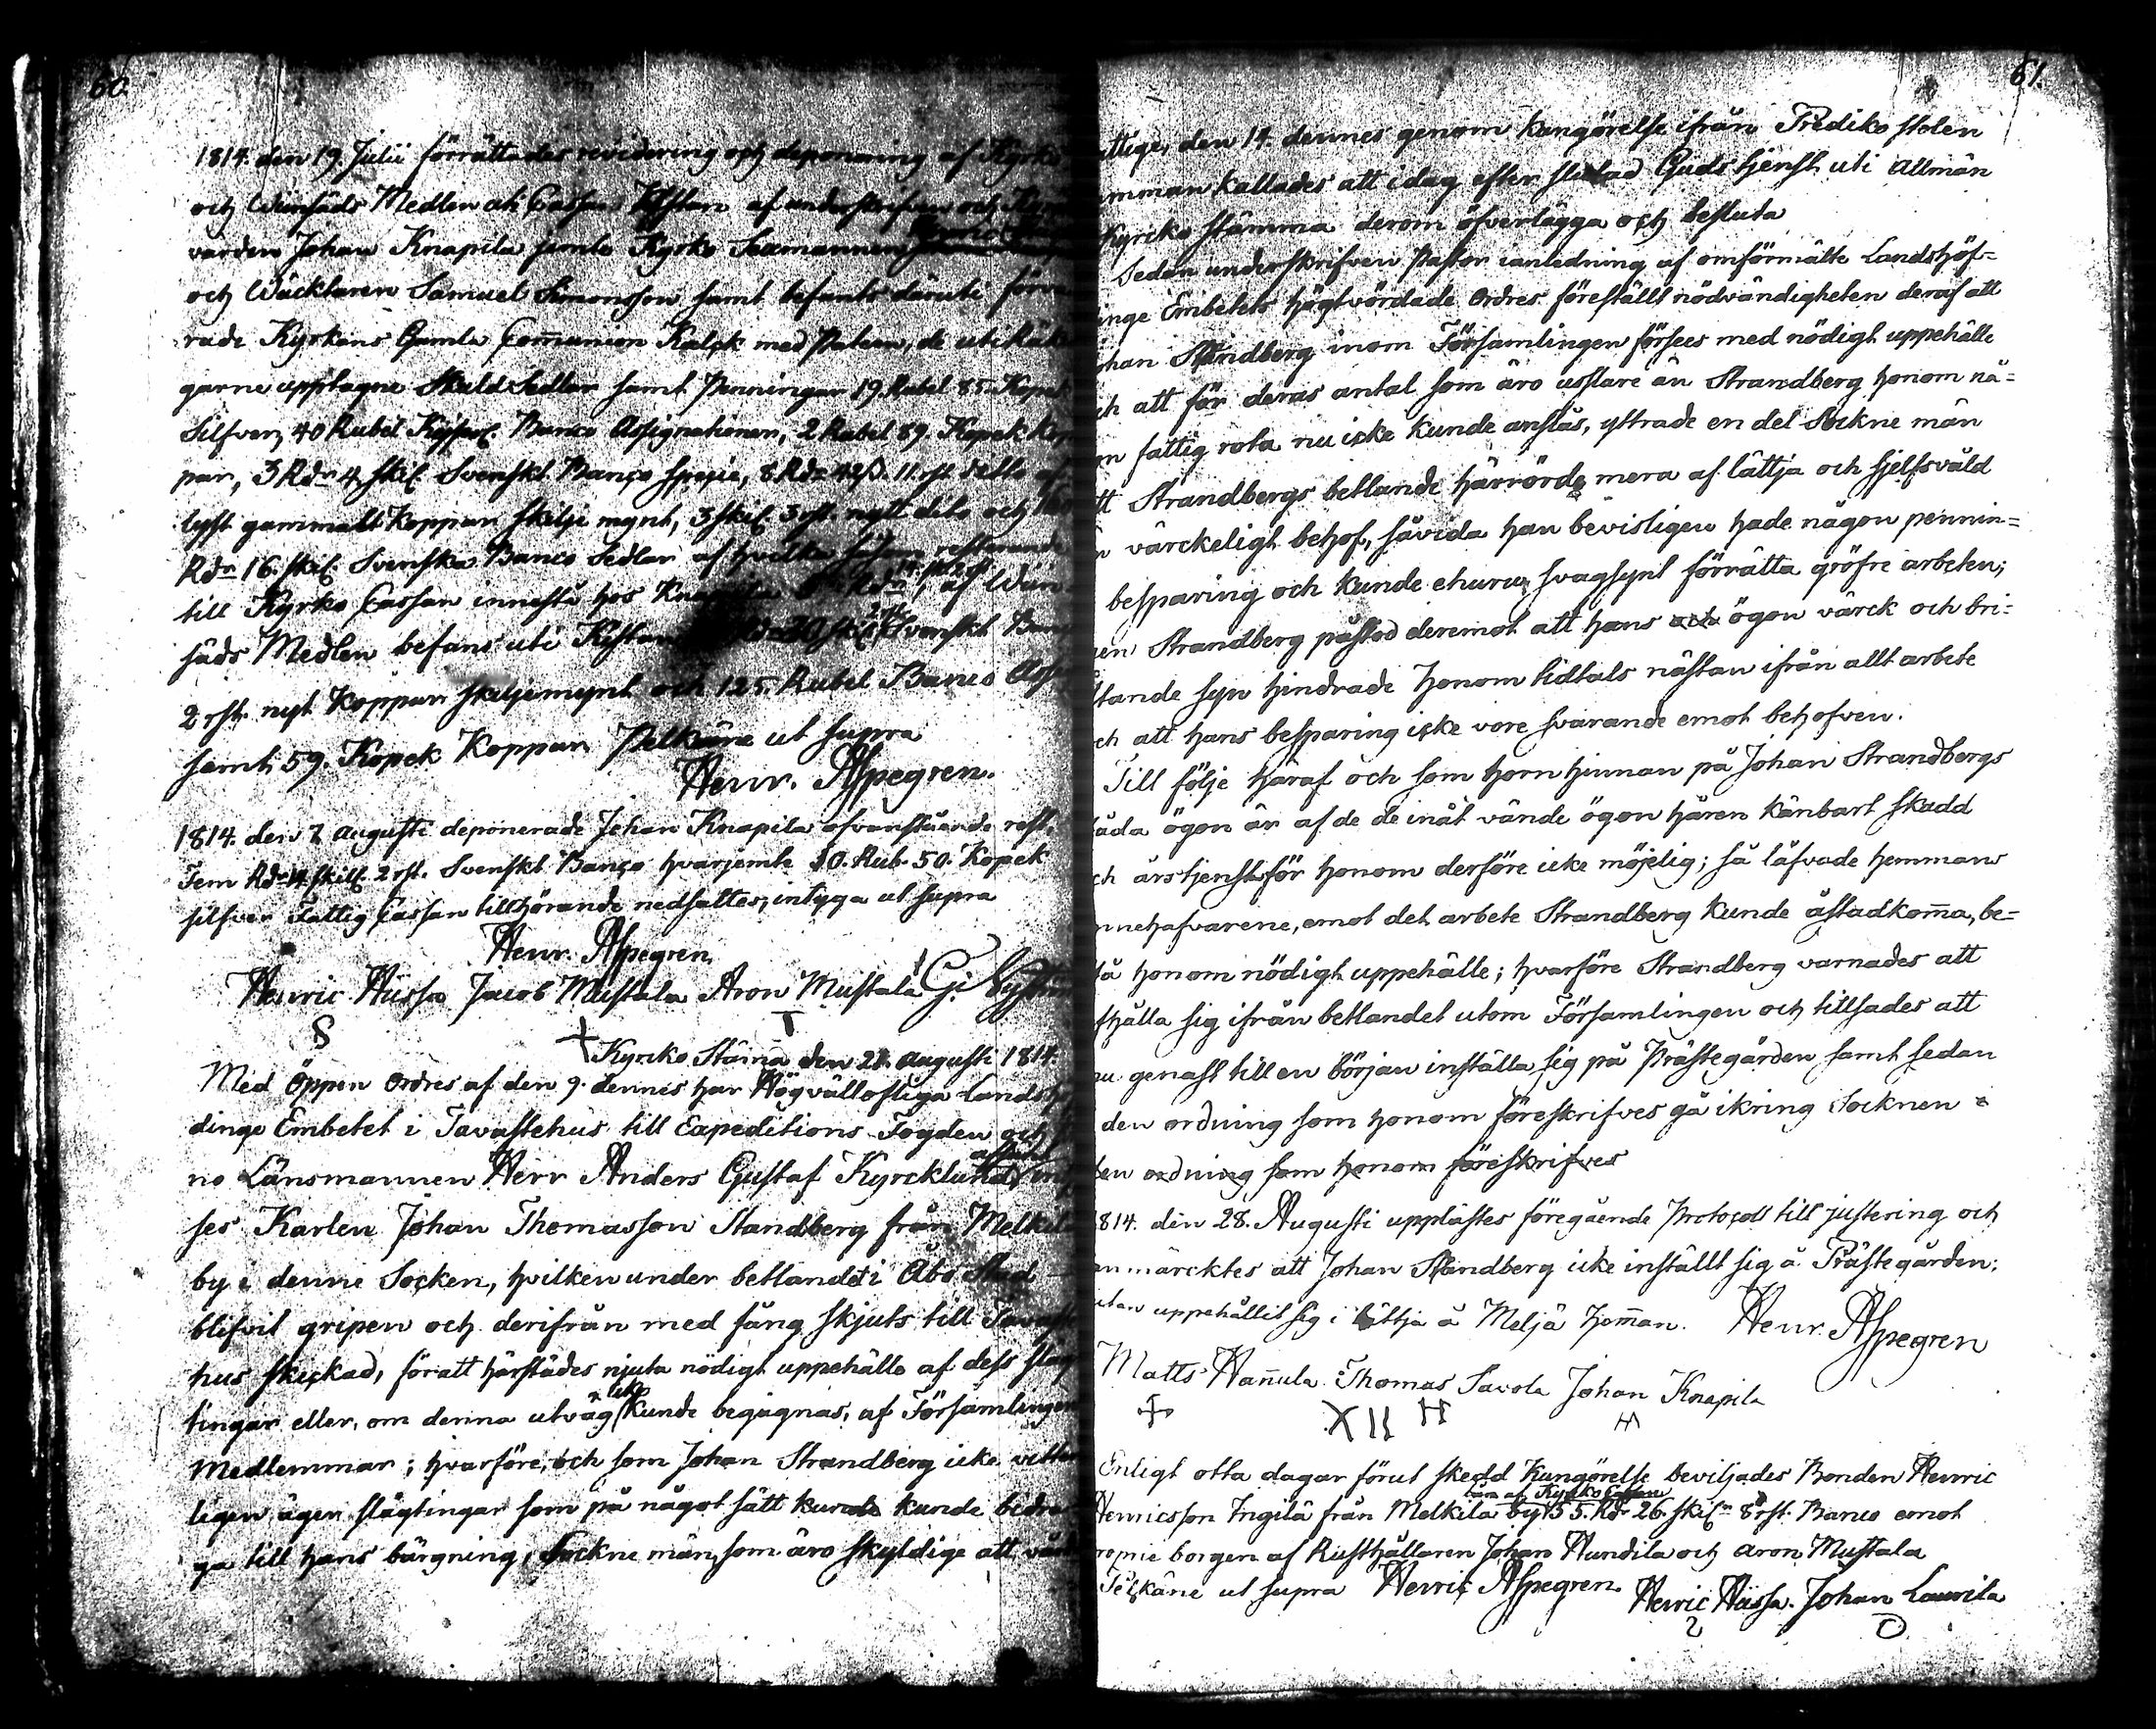 60.
1814. den 19. Julii förrättades revidering och deponering af Kyrko
och Winsäds Medlen
varden Johan Knapila jemte Kyrko Sexmannen
och Wäcktaren Samuel Simonsson samt befants däruti förva
rade Kyrkans Gamla Com̄union Kalck med Paten, de
garne upptagne Skuld Sedlar samt Penningar 19. Rubel 85. Kopek
Silfver, 40 Rubel Banco Assignationer, 2 Rubel 89. Kopek Kop
par, 3 Rdr 4 skil. Svenskt Banco specie, 8 Rdr 42 sk. 11. rst. dello af
lyst gammalt Koppar skilje mynt, 3 skil. 3 rst. nytt dito och
Rdr 16. skil. Svenska Banco Sedlar af hvilka resterande
till Kyrko Cassan innestå hos Knapila Rdr af Win
säds Medlen befans uti Kistan Svenskt Ban
2 rst. nyt Koppar skiljemynt och 125. Rubel Banco Ass
samt 59. Kopek Koppar. Pelkäne ut supra
Henr. Aspegren.
1814. den 7 augusti deponerade Johan Knapila ofvanstående rest.
Fem Rdr 14 skill. 2 rst. Svenskt Banco hvarjemte 10. Rub. 50. Kopek
silfver Fattig Cassan tillhörande nedsattes, intyga ut supra
Henr. Aspegren.
Henric Hüssa Jacob Mustala Aron Mustala G.
Kyrcko Stäm̄a den 21. augusti 1814.
Med Öppen Ordres af den 9. dennes har Högvällofliga Landshöf
dinge Embetet i Tavastehus till Expeditions Fogden och
no Länsmannen Herr Anders Gustaf Kyrcklund
ses Karlen Johan Thomasson Standberg från Melkila
by i denne Socken, hvilken under betlandet i Åbo Stad
blifvit gripen och derifrån med fång skjuts till Tavaste
hus skickad, för att härstädes njuta nödigt uppehälle af dess släg
tingar eller, om denna utväg icke kunde begagnas, af Församlingens
Medlemmar; hvarföre, och som Johan Strandberg icke vetter
ligen äger slägtingar som på något sätt kunde kunde bidra
ga till hans bärgning, Sockne män, som äro skyldige att vårda
61.
attige, den 14. dennes genom kungörelse ifrån Prediko stolen
mman kallades att i dag efter slutad Gudstjenst uti Allmän
Kyrcko stämma derom öfverlägga och besluta
Sedan underskrifven Pastor i anledning af omförmälte Landshöf=
inge Embetets högtvördade Ordres föreställt nödvändigheten deraf att
ohan Strandberg inom Församlingen försees med nödigt uppehälle
ch att för deras antal som äro usslare än Strandberg honom nå=
on fattig rota nu icke kunde anslås, yttrade en del Sockne män
tt Strandbergs betlande härrörde mera af lättja och sjelfsvåld
n värckeligt behof, såvida han bevisligen hade någon pennin=
besparing och kunde ehuru svagsynt förrätta gröfre arbeten;
en Strandberg påstod deremot att hans och ögon värck och bri=
stande syn hindrade honom tidtals nästan ifrån allt arbete
ch att hans besparing icke vore svarande emot behofven.
Till följe häraf och som horn hinnan på Johan Strandbergs
åda ögon är af de de inåt vände ögon håren känbart skadd
ch års tjenst för honom derföre icke möjelig; så låfvade hemmans
nnehafvarene, emot det arbete Strandberg kunde åstadkom̄a, be=
stå honom nödigt uppehälle; hvarföre Strandberg varnades att
hålla sig ifrån betlandet utom Församlingen och tillsades att
nu genast till en början inställa sig på Prästegården samt sedan
den ordning som honom föreskrifves gå ikring Socknen
den ordning som honom föreskrifves
1814. den 28. Augusti upplästes föregående Protocoll till justering och
anmärcktes att Johan Strandberg icke inställt sig å Prästegården;
utan uppehållit sig i lättja å Meljä hem̄an. Henr. Aspegren
Matts Han̄ula Thomas Savola Johan Knapila
Enligt otta dagar förut skedd Kungörelse beviljades Bonden Henric
lån af Kyrko Cassan
Henricsson Ingilä från Melkila by 155. Rdr 26. skil. 8 rst. Banco emot
ropie borgen af Rusthållaren Johan Hundila och Aron Mustala
Pelkäne ut supra Henric Aspegren. Henric Hüssa. Johan Laurila